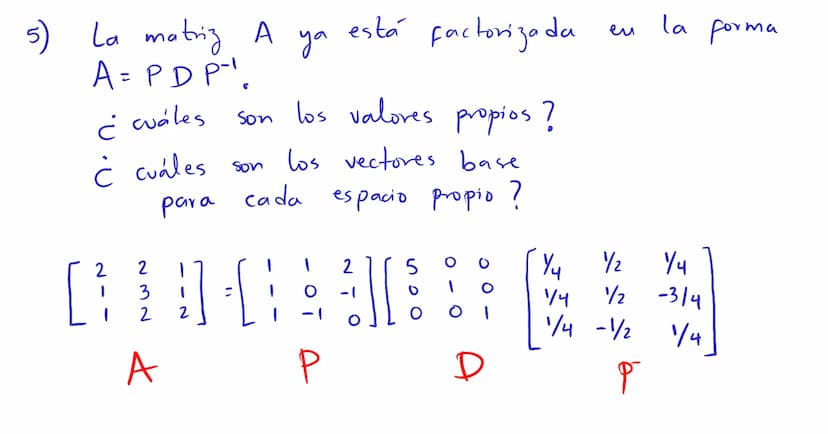 5) La matriz A ya está factorizada en la forma
A = P D P⁻¹.
¿ cuáles son los valores propios?
¿ cuáles son los vectores base
para cada espacio propio?
[2 2 1] = [1 1 2] [5 0 0] [1/4 1/2 1/4]
[1 3 1] [1 0 -1] [0 1 0] [1/4 1/2 -3/4]
[1 2 2] [1 -1 0] [0 0 1] [1/4 -1/2 1/4]
A P D P⁻